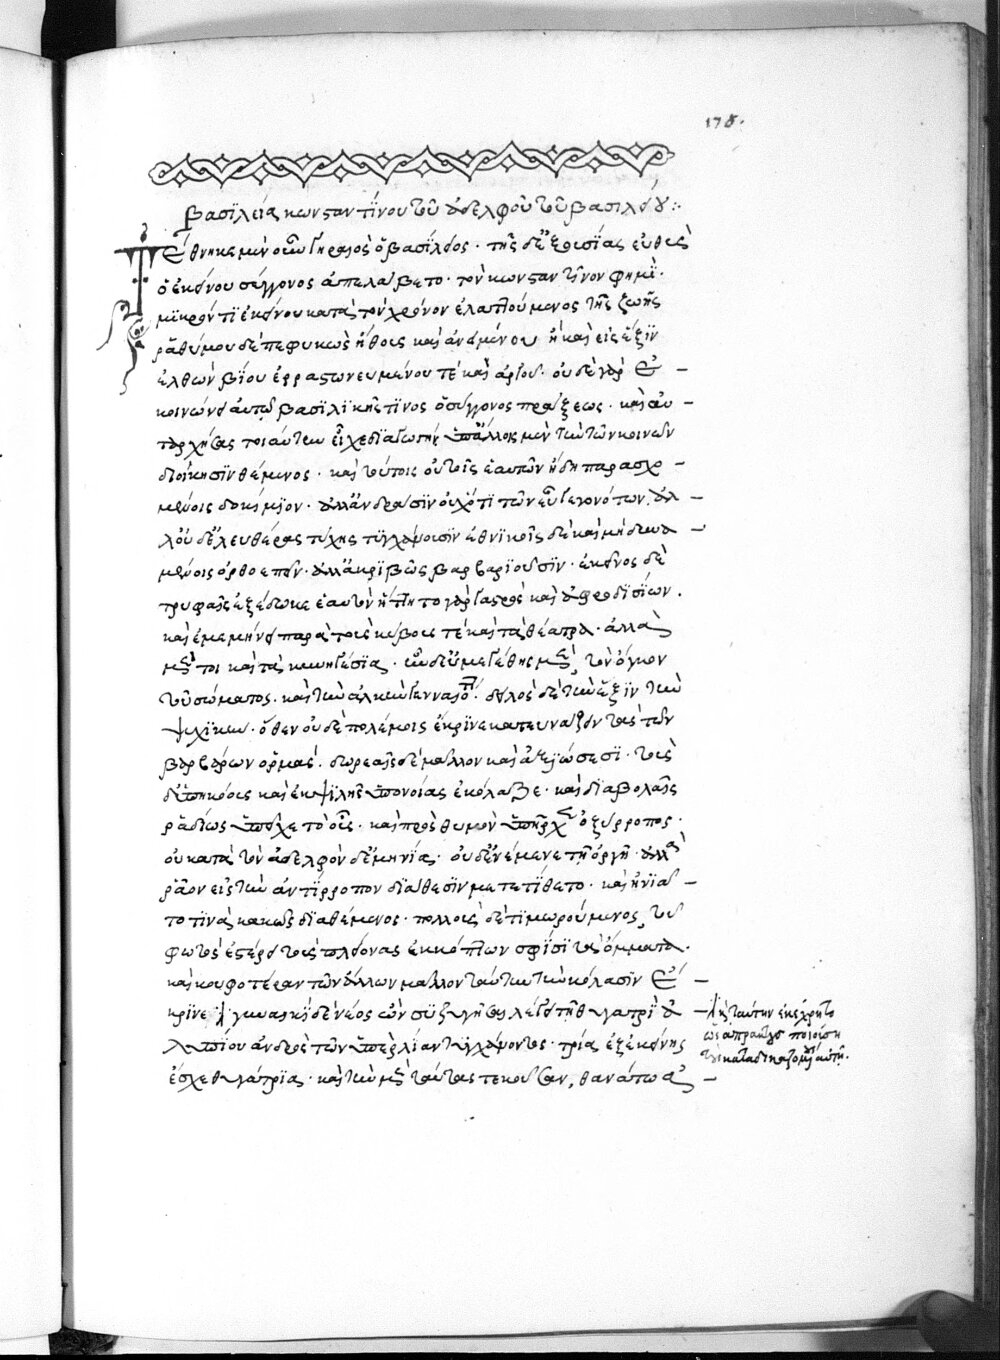 178.
βασϊλεία κωνσταντίνου τοῦ ἀδελφοῦ τοῦ βασιλέου:
Τέθνηκε μὲν οὕτω γηραιὸς ὁ βασίλειος· τῆς δὲ ἐξουσίας εὐθὺς
ὁ ἐκείνου σύγγονος ἀπελάβετο· τὸν κωνσταντῖνον φημὶ·
μϊκρόν τϊ ἐκείνου κατὰ τὸν χρόνον ἐλαττούμενος τῆς ζωῆς
ῥᾳθύμου δὲ πεφυκὼς ἤθους καὶ ἀνειμένου ἢ καὶ εἰς ἕξιν
ἐλθὼν βίου ἐρραστωνευμένου τὲ καὶ ἀργοῦ· οὐδὲ γὰρ ἐ
κοινώνει αὐτῷ βασιλϊκῆς τϊνος ὁ σύγγονος πράξεως· καὶ αὐ
ταρχήσας τοιαύτην εἶχε διαγωγήν ὑπ' ἄλλοις μὲν τὴν τῶν κοινῶν
διοίκησϊν θέμενος· καὶ τούτοις οὔ τισϊν ἑαυτῶν ἤδη παρασχο
μένοις δοκίμϊον· ἀλλ' ἀνδράσϊν οὐχ' ὅτι τῶν εὖ γεγονότων ἀλ
λ' οὐδ' ἐλευθέρας τύχης τϋγχάνουσϊν ἐθνϊκοῖς δὲ καὶ μὴ δυνα
μένοις ὀρθοεπεῖν· ἀλλ' ἀκρϊβῶς βαρβαρίουσϊν· ἐκεῖνος δὲ
τρυφαῖς ἐξέδωκε ἑαυτὸν ἥττητο γὰρ γαστρὸς καὶ ἀφροδϊσίων.
καὶ ἐμεμήνει παρὰ τοὺς κύβους τὲ καὶ τὰ θέατρα· ἀλλὰ
μέντοι καὶ τὰ κυνηγέσϊα· ὢν δ' εὐμεγέθης μὲν, τὸν ὄγκον
τοῦ σώματος· καὶ τὴν ἀλκὴν γενναῖος· δειλὸς δὲ τὴν ἕξϊν τὴν
ψυχϊκήν· ὅθεν οὐδὲ πολέμοις ἔκρϊνε κατευνάζειν τὰς τῶν
βαρβάρων ὁρμάς· δωρεαῖς δὲ μᾶλλον καὶ ἀξϊώσεσϊ· τοὺς
δ' ὑπηκόους καὶ ἐκ ψϊλῆς ὑπονοίας ἐκόλαζε· καὶ δϊαβολαῖς
ῥαδίως ὑπεῖχε τὸ οὖς· καὶ πρὸς θυμὸν ὑπῆρχεν ὀξύρροπος·
οὐ κατὰ τὸν ἀδελφὸν δ' ἐμηνία· οὐδ' ἐνέμενε τῇ ὀργῇ· ἀλλὰ
ῥᾷον εἰς τὴν ἀντίρροπον δϊάθεσϊν μετετϊθετο· καὶ ἠνϊᾶ
το τϊνὰς κακῶς δϊαθέμενος· πολλοὺς δὲ τϊμωρούμενος, τοῦ
φωτὸς ἐστέρει τοὺς πλείονας ἐκκόπτων σφίσϊ τὰ ὄμματα·
καὶ κουφοτέραν τῶν ἄλλων μᾶλλον ταύτην τὴν κόλασϊν ἔ
κρϊνε· γυναικὶ δὲ νέος ὢν σϋζυγῆσας λέγεται τῇ θυγατρὶ ἀ
λυπίου ἀνδρὸς τῶν ὑπερλίαν τϋγχάνοντος· τρία ἐξ ἐκείνης
ἔσχε θυγάτρϊα· καὶ τὴν μὲν ταύτας τεκοῦσαν, θανάτω ἀ
καὶ ταύτην ἐκέχρητο
ὡς ἀπράκτους ποιούσῃ
τοὺς καταδικαζομένους αὐτῇ.